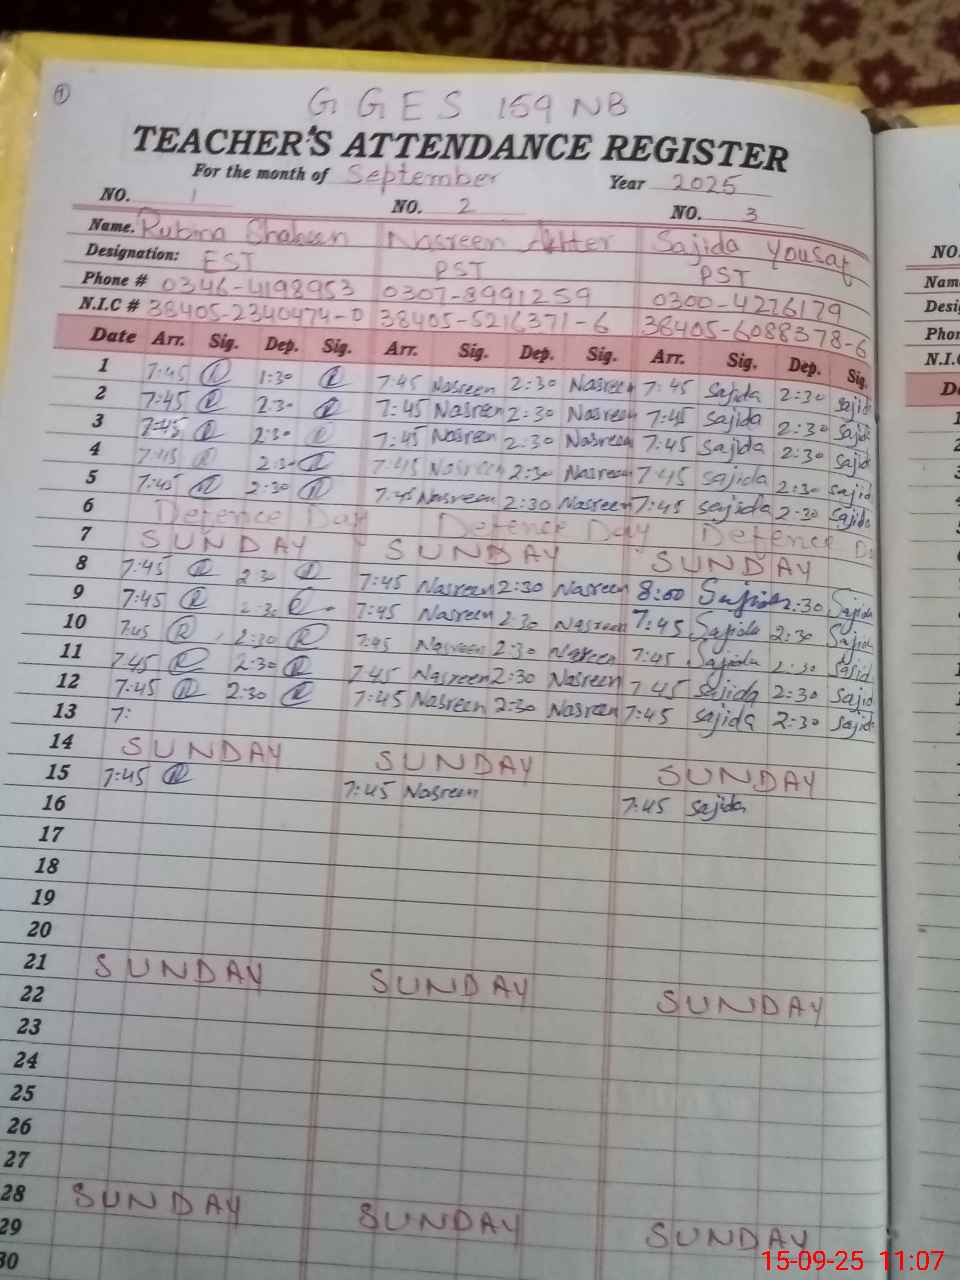 1
G G E S 159 NB
TEACHER'S ATTENDANCE REGISTER
For the month of September Year 2025
NO. 1 NO. 2 NO. 3
Name. Rubina Shaheen Nasreen Akhter Sajida Yousaf
Designation: EST PST PST
Phone # 0346-4198953 0307-8991259 0300-4276179
N.I.C # 38405-2340474-0 38405-5216371-6 38405-6088378-6
Date Arr. Sig. Dep. Sig. Arr. Sig. Dep. Sig. Arr. Sig. Dep. Sig.
1 7:45 R 1:30 R 7:45 Nasreen 2:30 Nasreen 7:45 Sajida 2:30 Sajid
2 7:45 R 2:30 R 7:45 Nasreen 2:30 Nasreen 7:45 Sajida 2:30 Sajid
3 7:45 R 2:30 R 7:45 Nasreen 2:30 Nasreen 7:45 Sajida 2:30 Sajid
4 7:45 R 2:30 R 7:45 Nasreen 2:30 Nasreen 7:45 Sajida 2:30 Sajid
5 7:45 R 2:30 R 7:45 Nasreen 2:30 Nasreen 7:45 Sajida 2:30 Sajida
6 Defence Day Defence Day Defence D
7 SUNDAY SUNDAY SUNDAY
8 7:45 R 2:30 R 7:45 Nasreen 2:30 Nasreen 8:00 Sajida 2:30 Sajida
9 7:45 R 2:30 R 7:45 Nasreen 2:30 Nasreen 7:45 Sajida 2:30 Sajida
10 7:45 R 2:30 R 7:45 Nasreen 2:30 Nasreen 7:45 Sajida 2:30 Sajid
11 7:45 R 2:30 R 7:45 Nasreen 2:30 Nasreen 7:45 Sajida 2:30 Sajid
12 7:45 R 2:30 R 7:45 Nasreen 2:30 Nasreen 7:45 Sajida 2:30 Sajid
13 7:
14 SUNDAY SUNDAY SUNDAY
15 7:45 R 7:45 Nasreen 7:45 Sajida
16
17
18
19
20
21 SUNDAY SUNDAY SUNDAY
22
23
24
25
26
27
28 SUNDAY SUNDAY SUNDAY
29
30
NO.
Nam
Desi
Phon
N.I.C
D
15-09-25 11:07